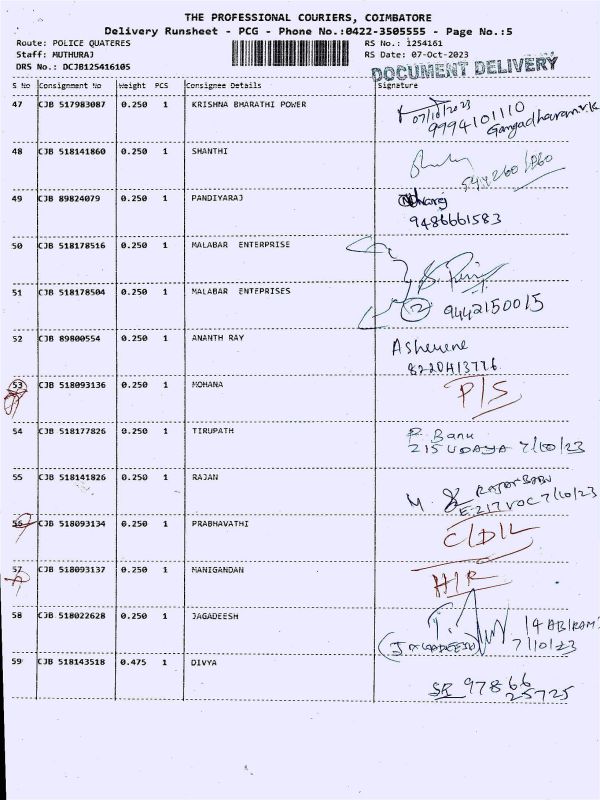 THE PROFESSIONAL COURIERS, COIMBATORE
Delivery Runsheet - PCG - Phone No.:0422-3505555 - Page No.:5
Route: POLICE QUATERES RS No.: 1254161
Staff: MUTHURAJ RS Date: 07-Oct-2023
DRS No.: DCJB125416105 DOCUMENT DELIVERY
S No Consignment No Weight PCS Consignee Details Signature
47 CJB 517983087 0.250 1 KRISHNA BHARATHI POWER
07/10/2023
9994101110
Gangadharan.V.K
48 CJB 518141860 0.250 1 SHANTHI
49 CJB 89824079 0.250 1 PANDIYARAJ
9486661583
50 CJB 518178516 0.250 1 MALABAR ENTERPRISE
51 CJB 518178504 0.250 1 MALABAR ENTEPRISES
2 9442150015
52 CJB 89800554 0.250 1 ANANTH RAY
53 CJB 518093136 0.250 1 MOHANA
P/S
54 CJB 518177826 0.250 1 TIRUPATH
P. Banu
215 UDAYA 7/10/23
55 CJB 518141826 0.250 1 RAJAN
M.
E-217 VOC 7/10/23
56 CJB 518093134 0.250 1 PRABHAVATHI
C/D/L
57 CJB 518093137 0.250 1 MANIGANDAN
H/R
58 CJB 518022628 0.250 1 JAGADEESH
(JAGADEESH)
7/10/23
59 CJB 518143518 0.475 1 DIVYA
SR 97866
25725